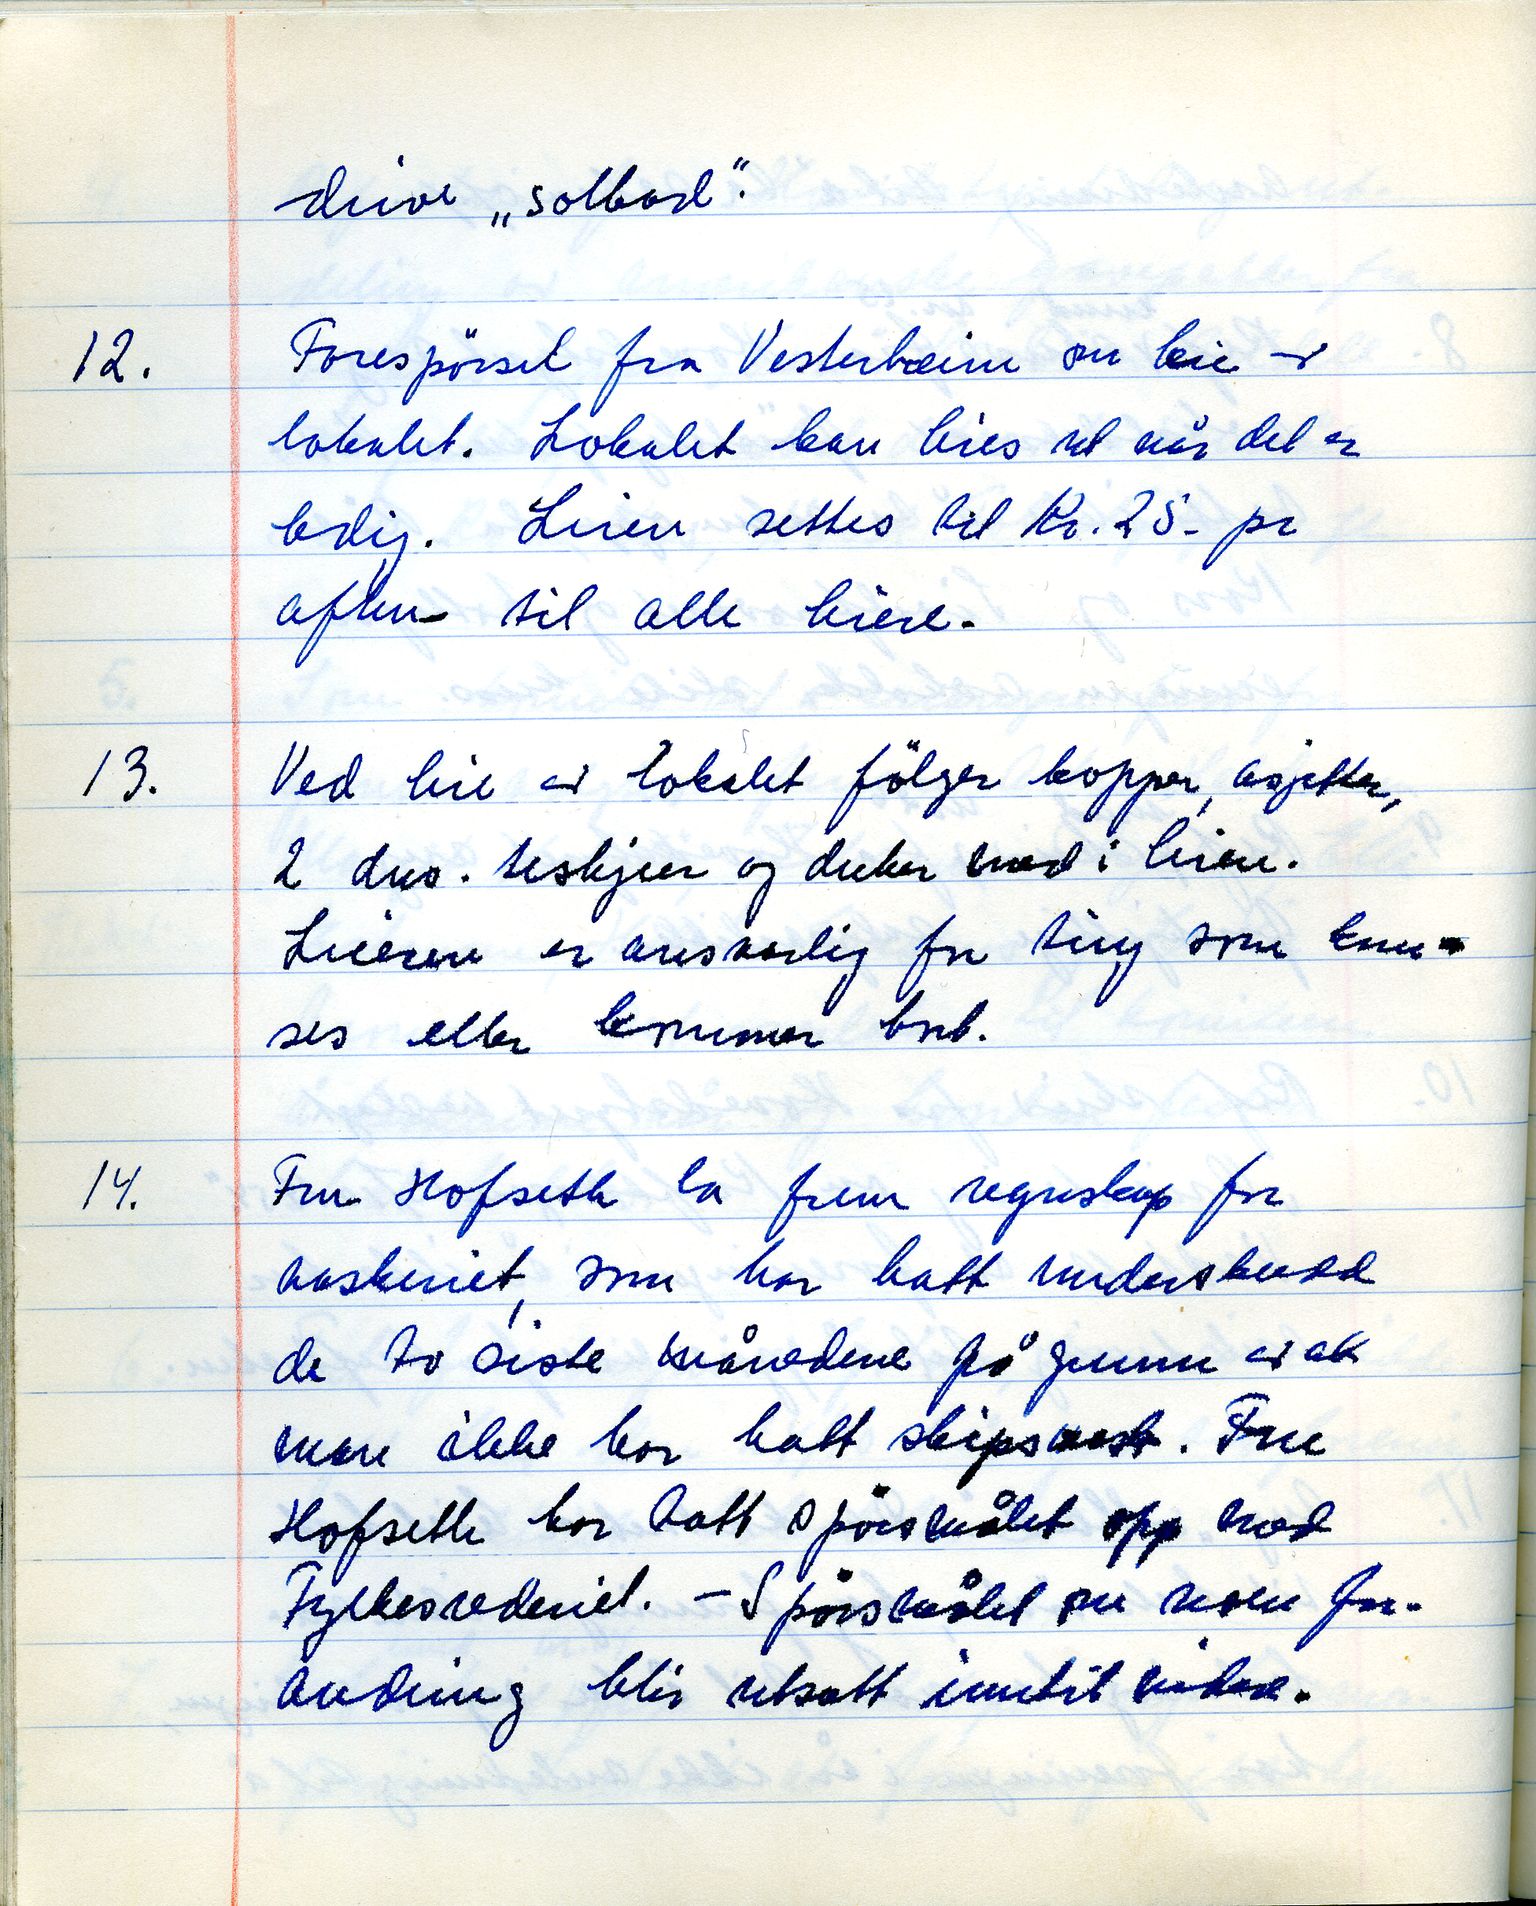 drive „solbad".
12. Forespörsel fra Vesterheim om leie av
lokalet. Lokalet kan leies ut når det er
ledig. Leien settes til Kr. 25.- pr
aften til alle leiere.
13. Ved leie av lokalet fölger kopper, asjetter,
2 dus. teskjeer og duker med i leien.
Leieren er ansvarlig for ting som knu-
ses eller kommer bort.
14. Fru Hofseth la frem regnskap for
vaskeriet, som har hatt underskudd
de to siste månedene på grunn av at
man ikke har hatt skipsvask. Fru
Hofseth har tatt spörsmålet opp med
Fylkesrederiet. - Spörsmålet om noen for-
andring blir utsatt inntil videre.